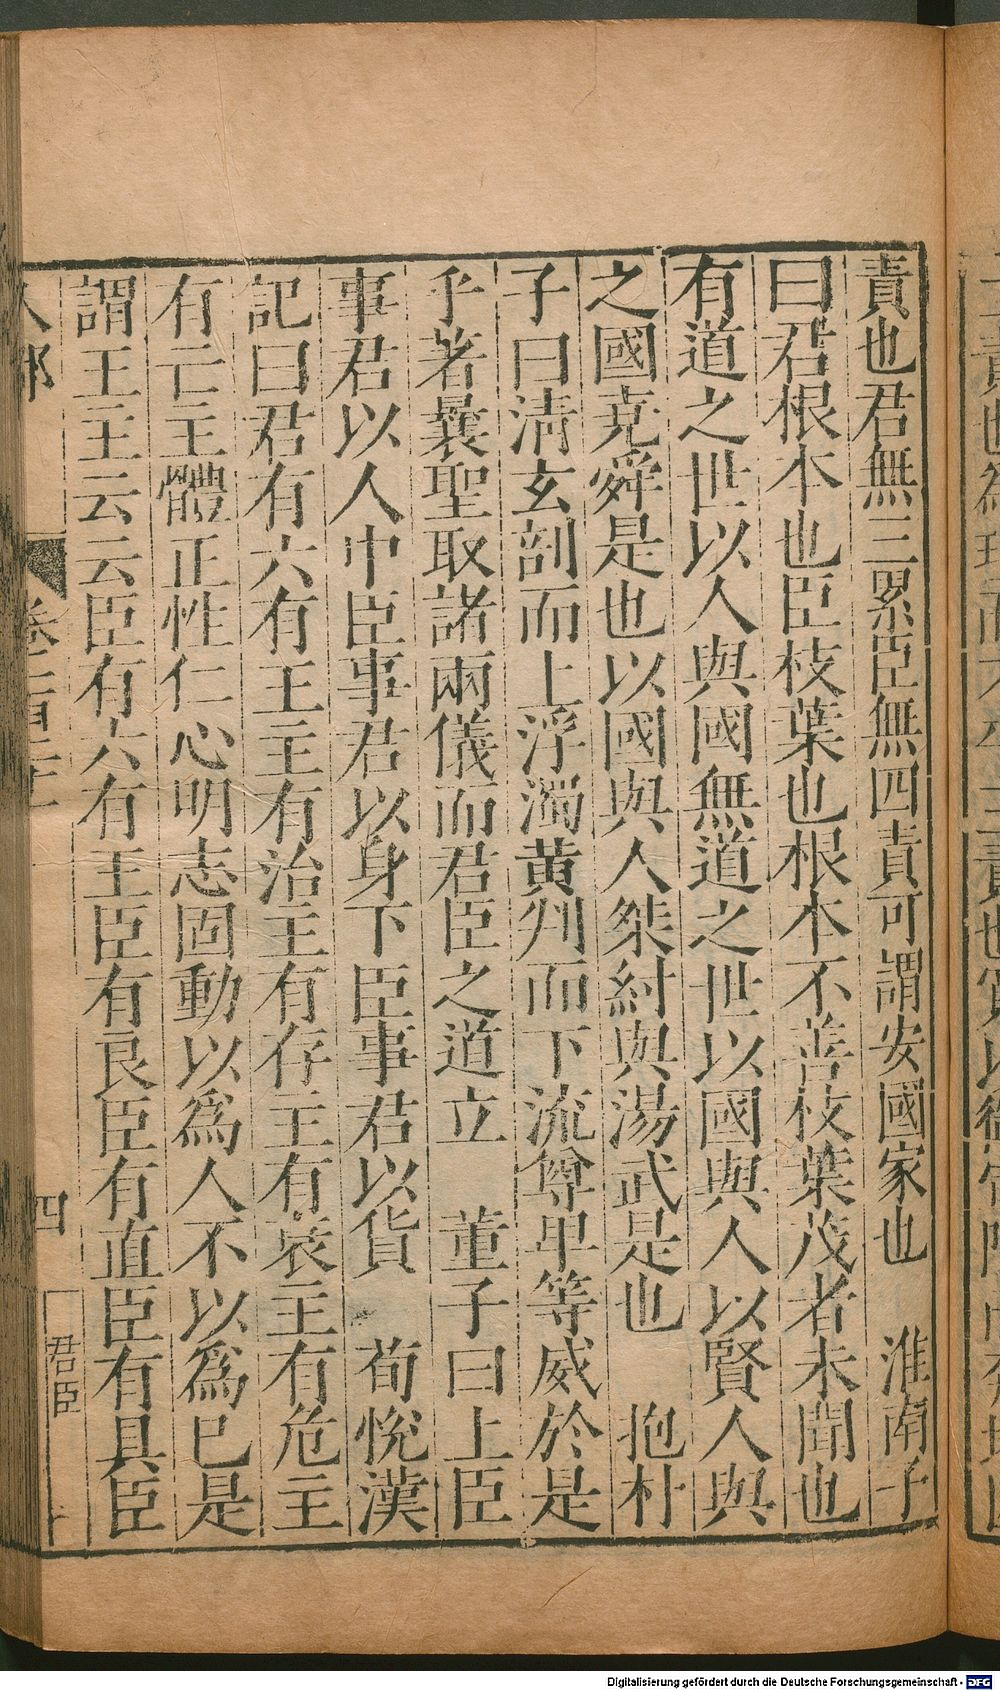 責也君無三累臣無四責可謂安國家也　淮南子
曰君根本也臣枝葉也根本不善枝葉茂者未聞也
有道之世以人與國無道之世以國與人以賢人與
之國堯舜是也以國與人桀紂與湯武是也　抱朴
子曰淸玄剖而上浮濁黄判而下流尊卑等威於是
乎著曩聖取諸兩儀而君臣之道立　董子曰上臣
事君以人中臣事君以身下臣事君以貨　荀悅漢
記曰君有六有王主有治主有存主有衰主有危主
有亡主體正性仁心明志固動以爲人不以爲已是
謂王主云云臣有六有王臣有良臣有直臣有具臣
人部
四
君臣
Digitalisierung gefördert durch die Deutsche Forschungsgemeinschaft - DFG